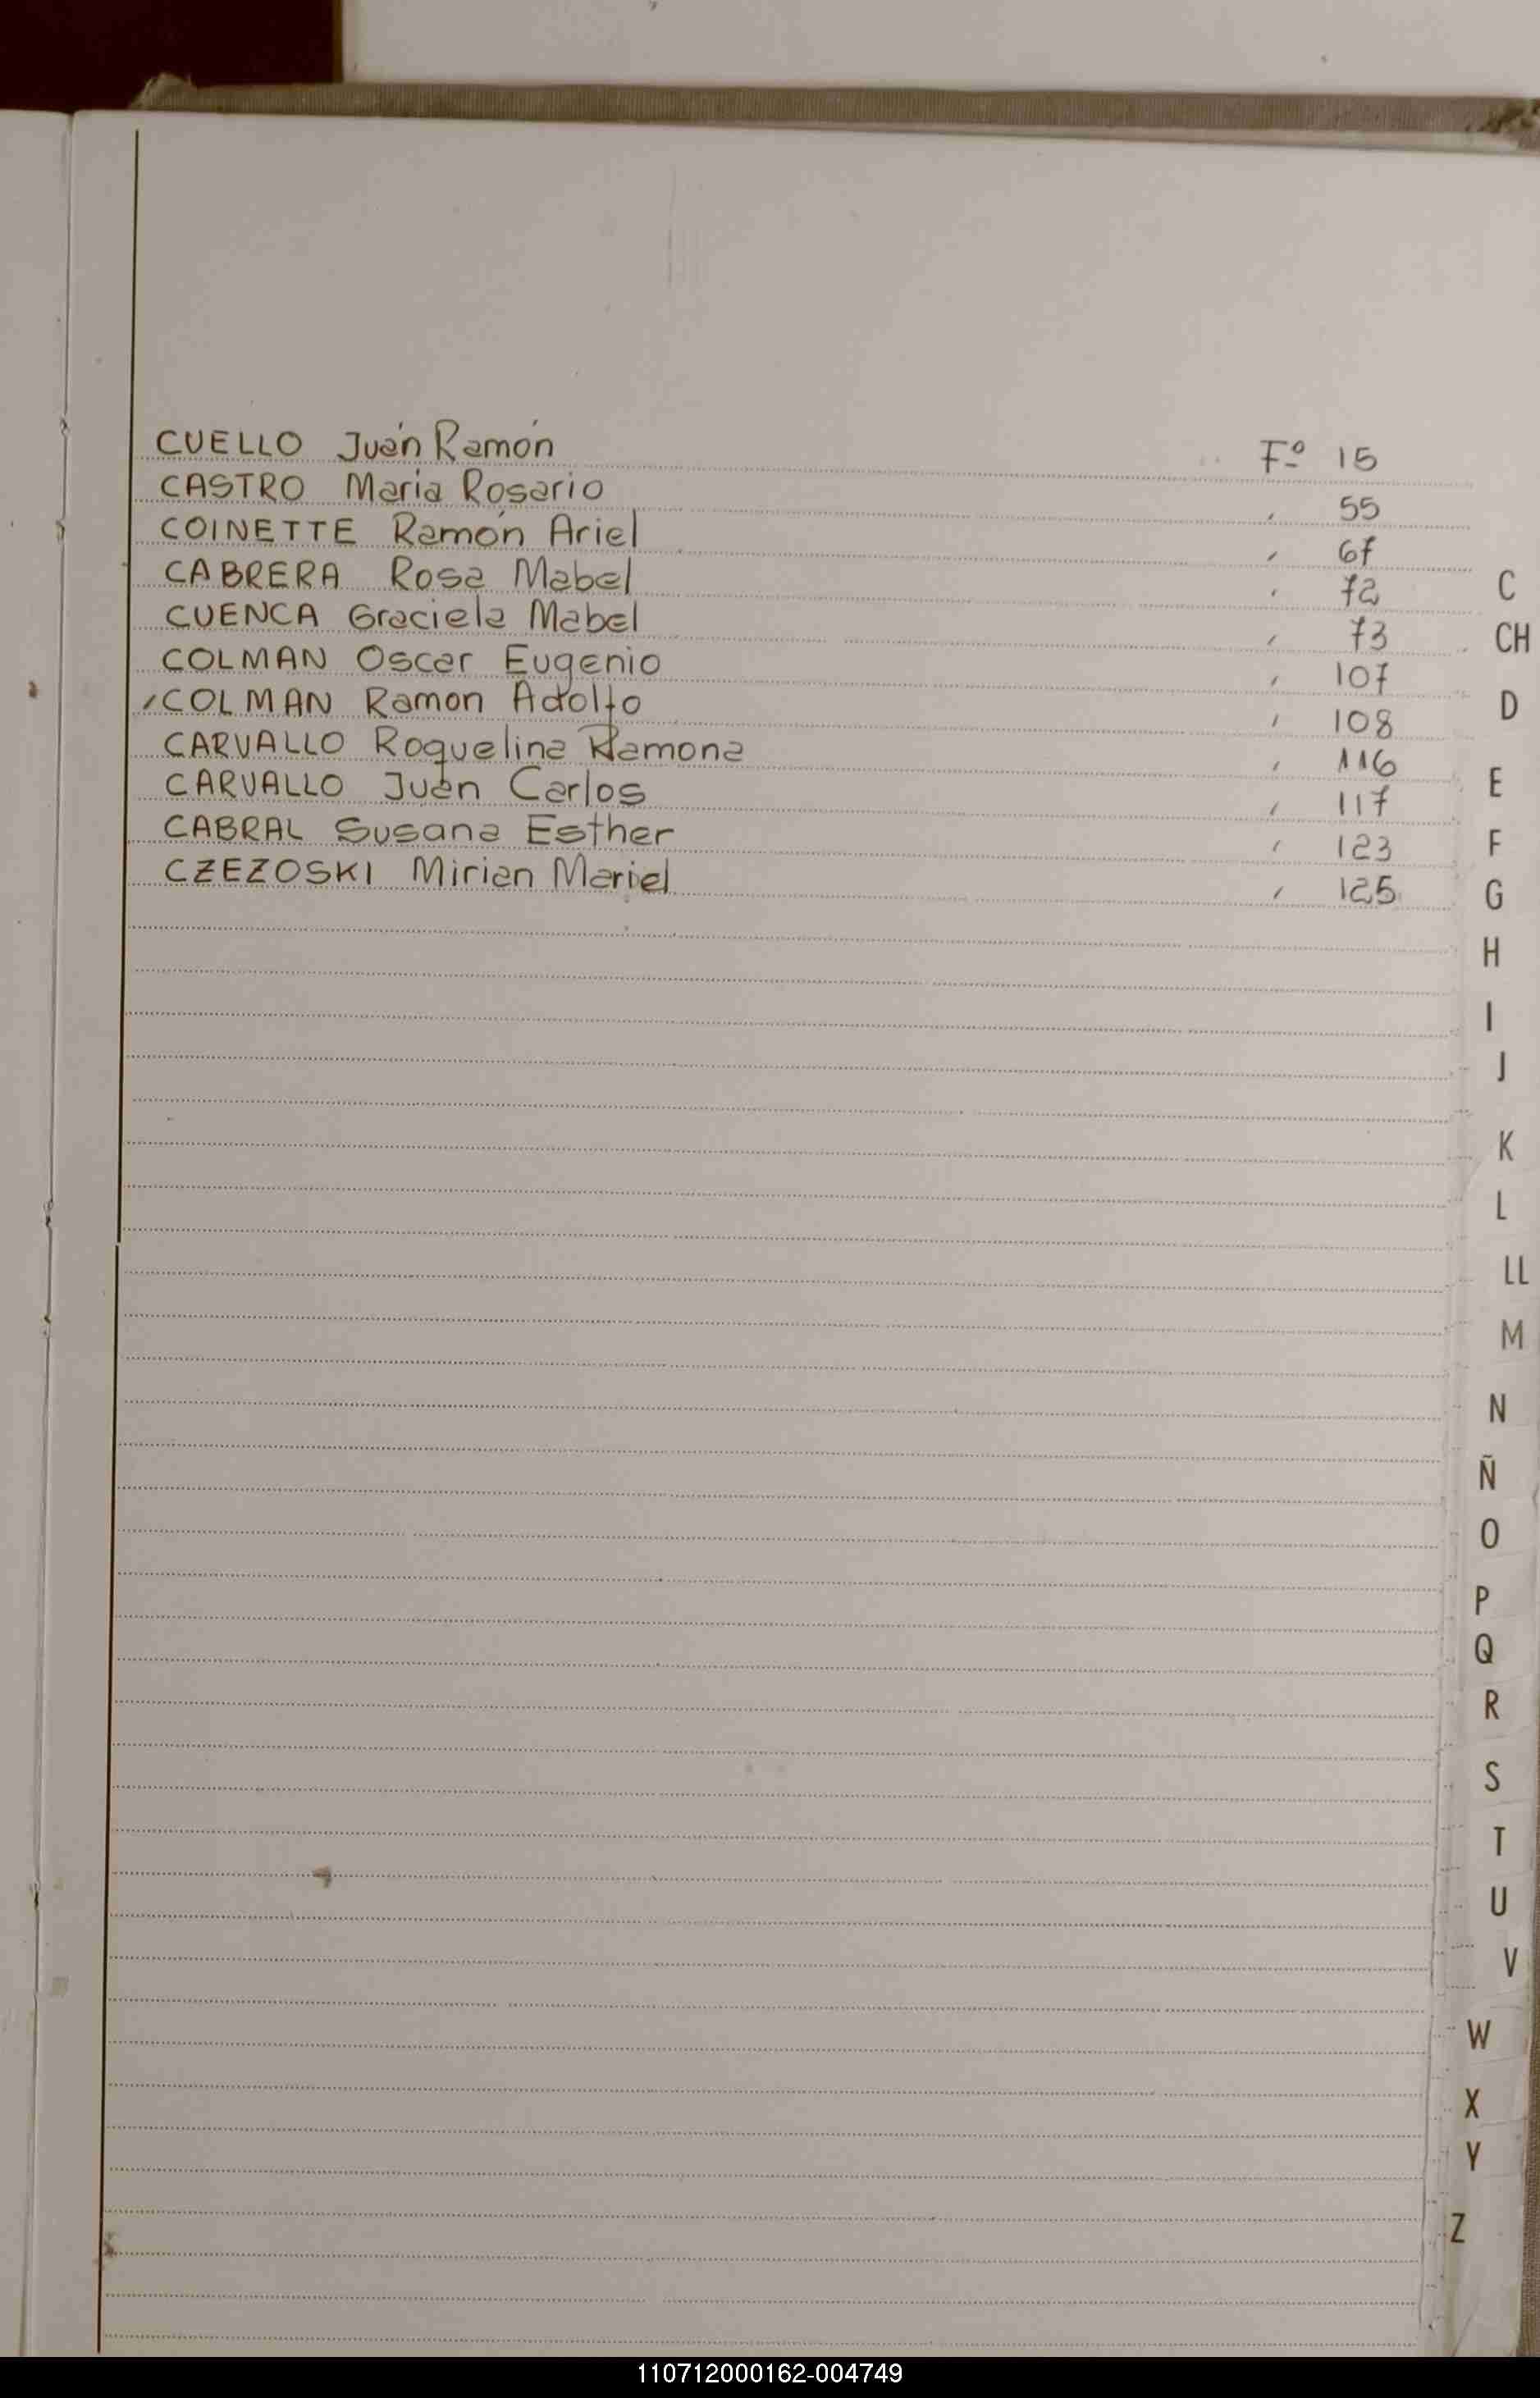 CUELLO Juán Ramón Fº 15
CASTRO Maria Rosario , 55
COINETTE Ramón Ariel , 67
CABRERA Rosa Mabel , 72
CUENCA Graciela Mabel , 73
COLMAN Oscar Eugenio , 107
COLMAN Ramon Adolfo , 108
CARVALLO Roquelina Ramona , 116
CARVALLO Juan Carlos , 117
CABRAL Susana Esther , 123
CZEZOSKI Mirian Mariel , 125
C
CH
D
E
F
G
H
I
J
K
L
LL
M
N
Ñ
O
P
Q
R
S
T
U
V
W
X
Y
Z
110712000162-004749